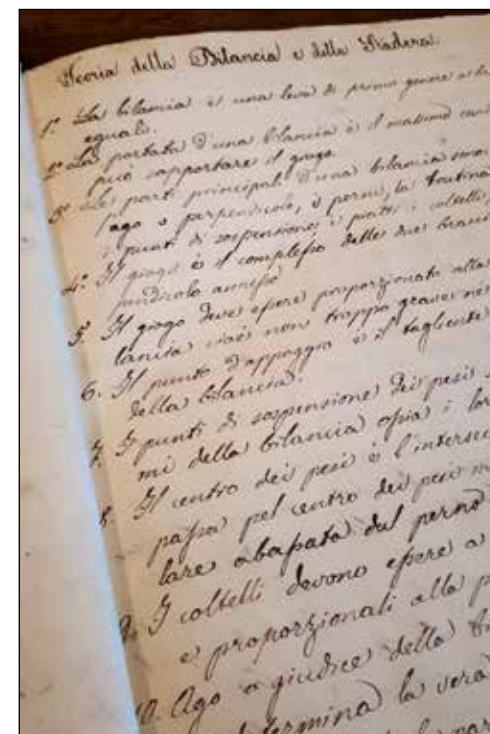 Teoria della Bilancia e della Stadera.
1.º La bilancia è una leva di primo genere a br
eguali.
2º La portata d'una bilancia è il massimo cari
può sopportare il giogo.
3º Le parti principali d'una bilancia sono
ago o perpendicolo, i perni, la trutina
i punti di sospensione, i piatti i coltelli,
4º Il giogo è il complesso delle due bracci
pendicolo annesso
5. Il giogo deve essere proporzionato alla
lancia cioè non troppo grave ne
6. Il punto d'appoggio è il tagliente
della bilancia.
7. I punti di sospensione dei pesi s
mi della bilancia ossia i lor
8. Il centro dei pesi è l'interse
passa pel centro dei pesi
lare abassata dal perno
9. I coltelli devono essere a
e proporzionali alla p
10. Ago o giudice della
determina la vera